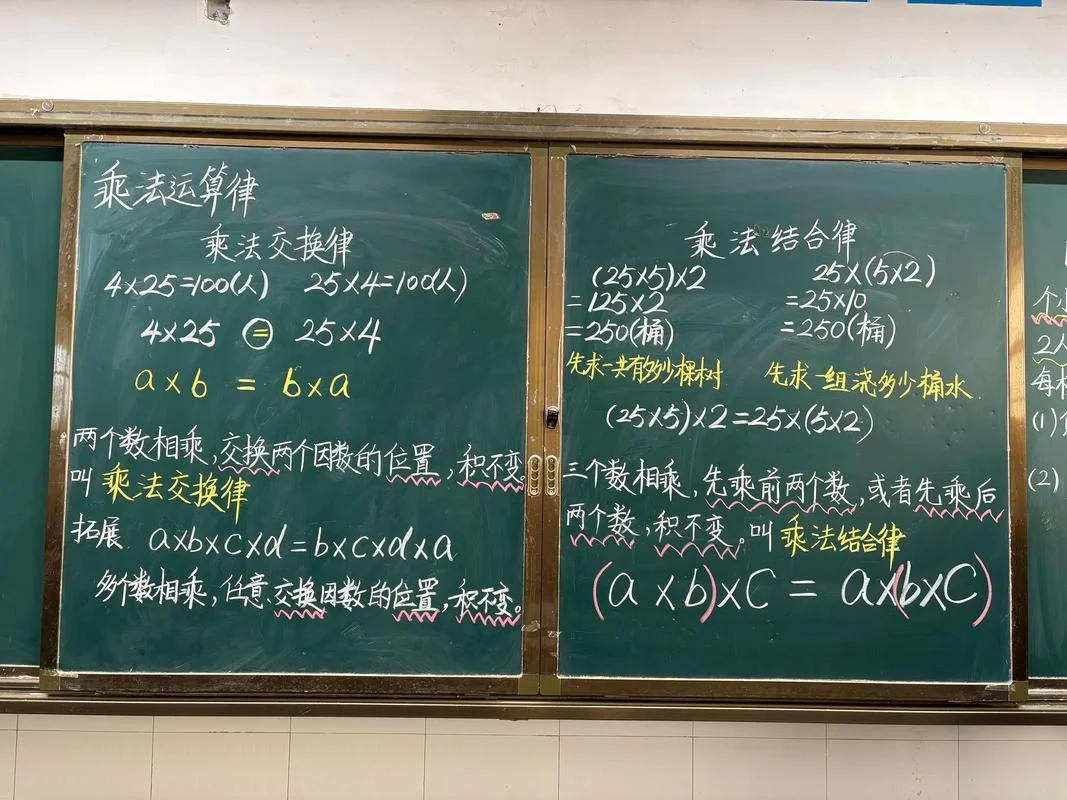 乘法运算律
乘法交换律
4×25=100(人) 25×4=100(人)
4×25 = 25×4
a×b = b×a
两个数相乘,交换两个因数的位置,积不变。
叫 乘法交换律
拓展 a×b×c×d=b×c×d×a
多个数相乘,任意交换因数的位置,积不变。
乘法结合律
(25×5)×2 25×(5×2)
=125×2 =25×10
=250(桶) =250(桶)
先求一共有多少棵树 先求一组浇多少桶水
(25×5)×2=25×(5×2)
三个数相乘,先乘前两个数,或者先乘后
两个数,积不变。叫 乘法结合律
(a×b)×c = a×(b×c)
个
2人
每
(1)
(2)